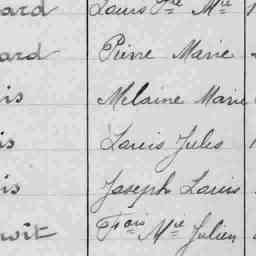 ard Louis Fre Mie
ard Pierre Marie
is Melaine Marie
is Louis Jules
is Joseph Louis
oit Fcois Mie Julien